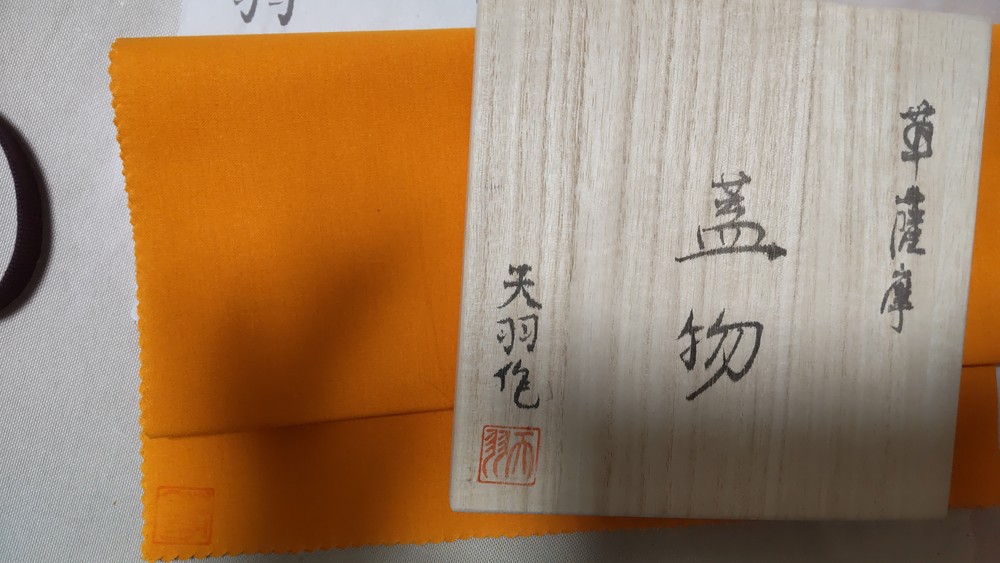 華薩摩
蓋物
天羽作
天羽
羽